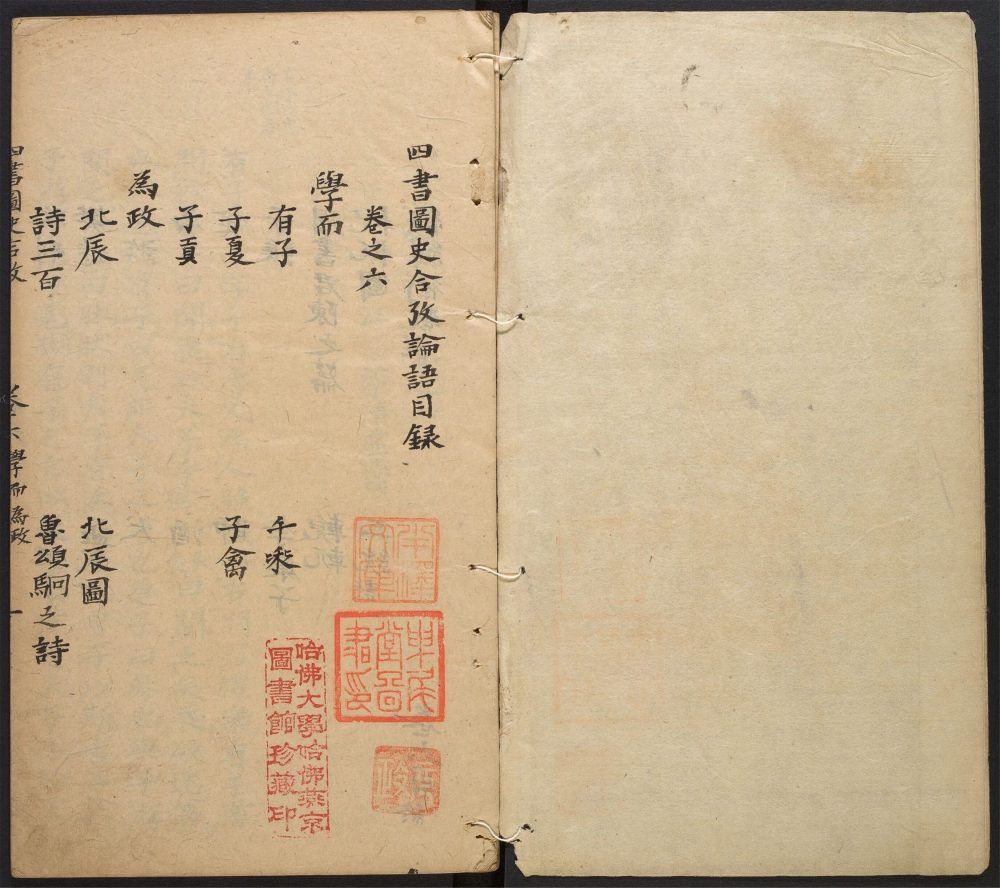 四書圖史合攷論語目録
卷之六
學而
有子 千乘
子夏 子禽
子貢
為政
北辰 北辰圖
詩三百 魯頌駉之詩
四書圖史合攷 卷六 學而 為政 一
哈佛大學哈佛燕京
圖書館珍藏印